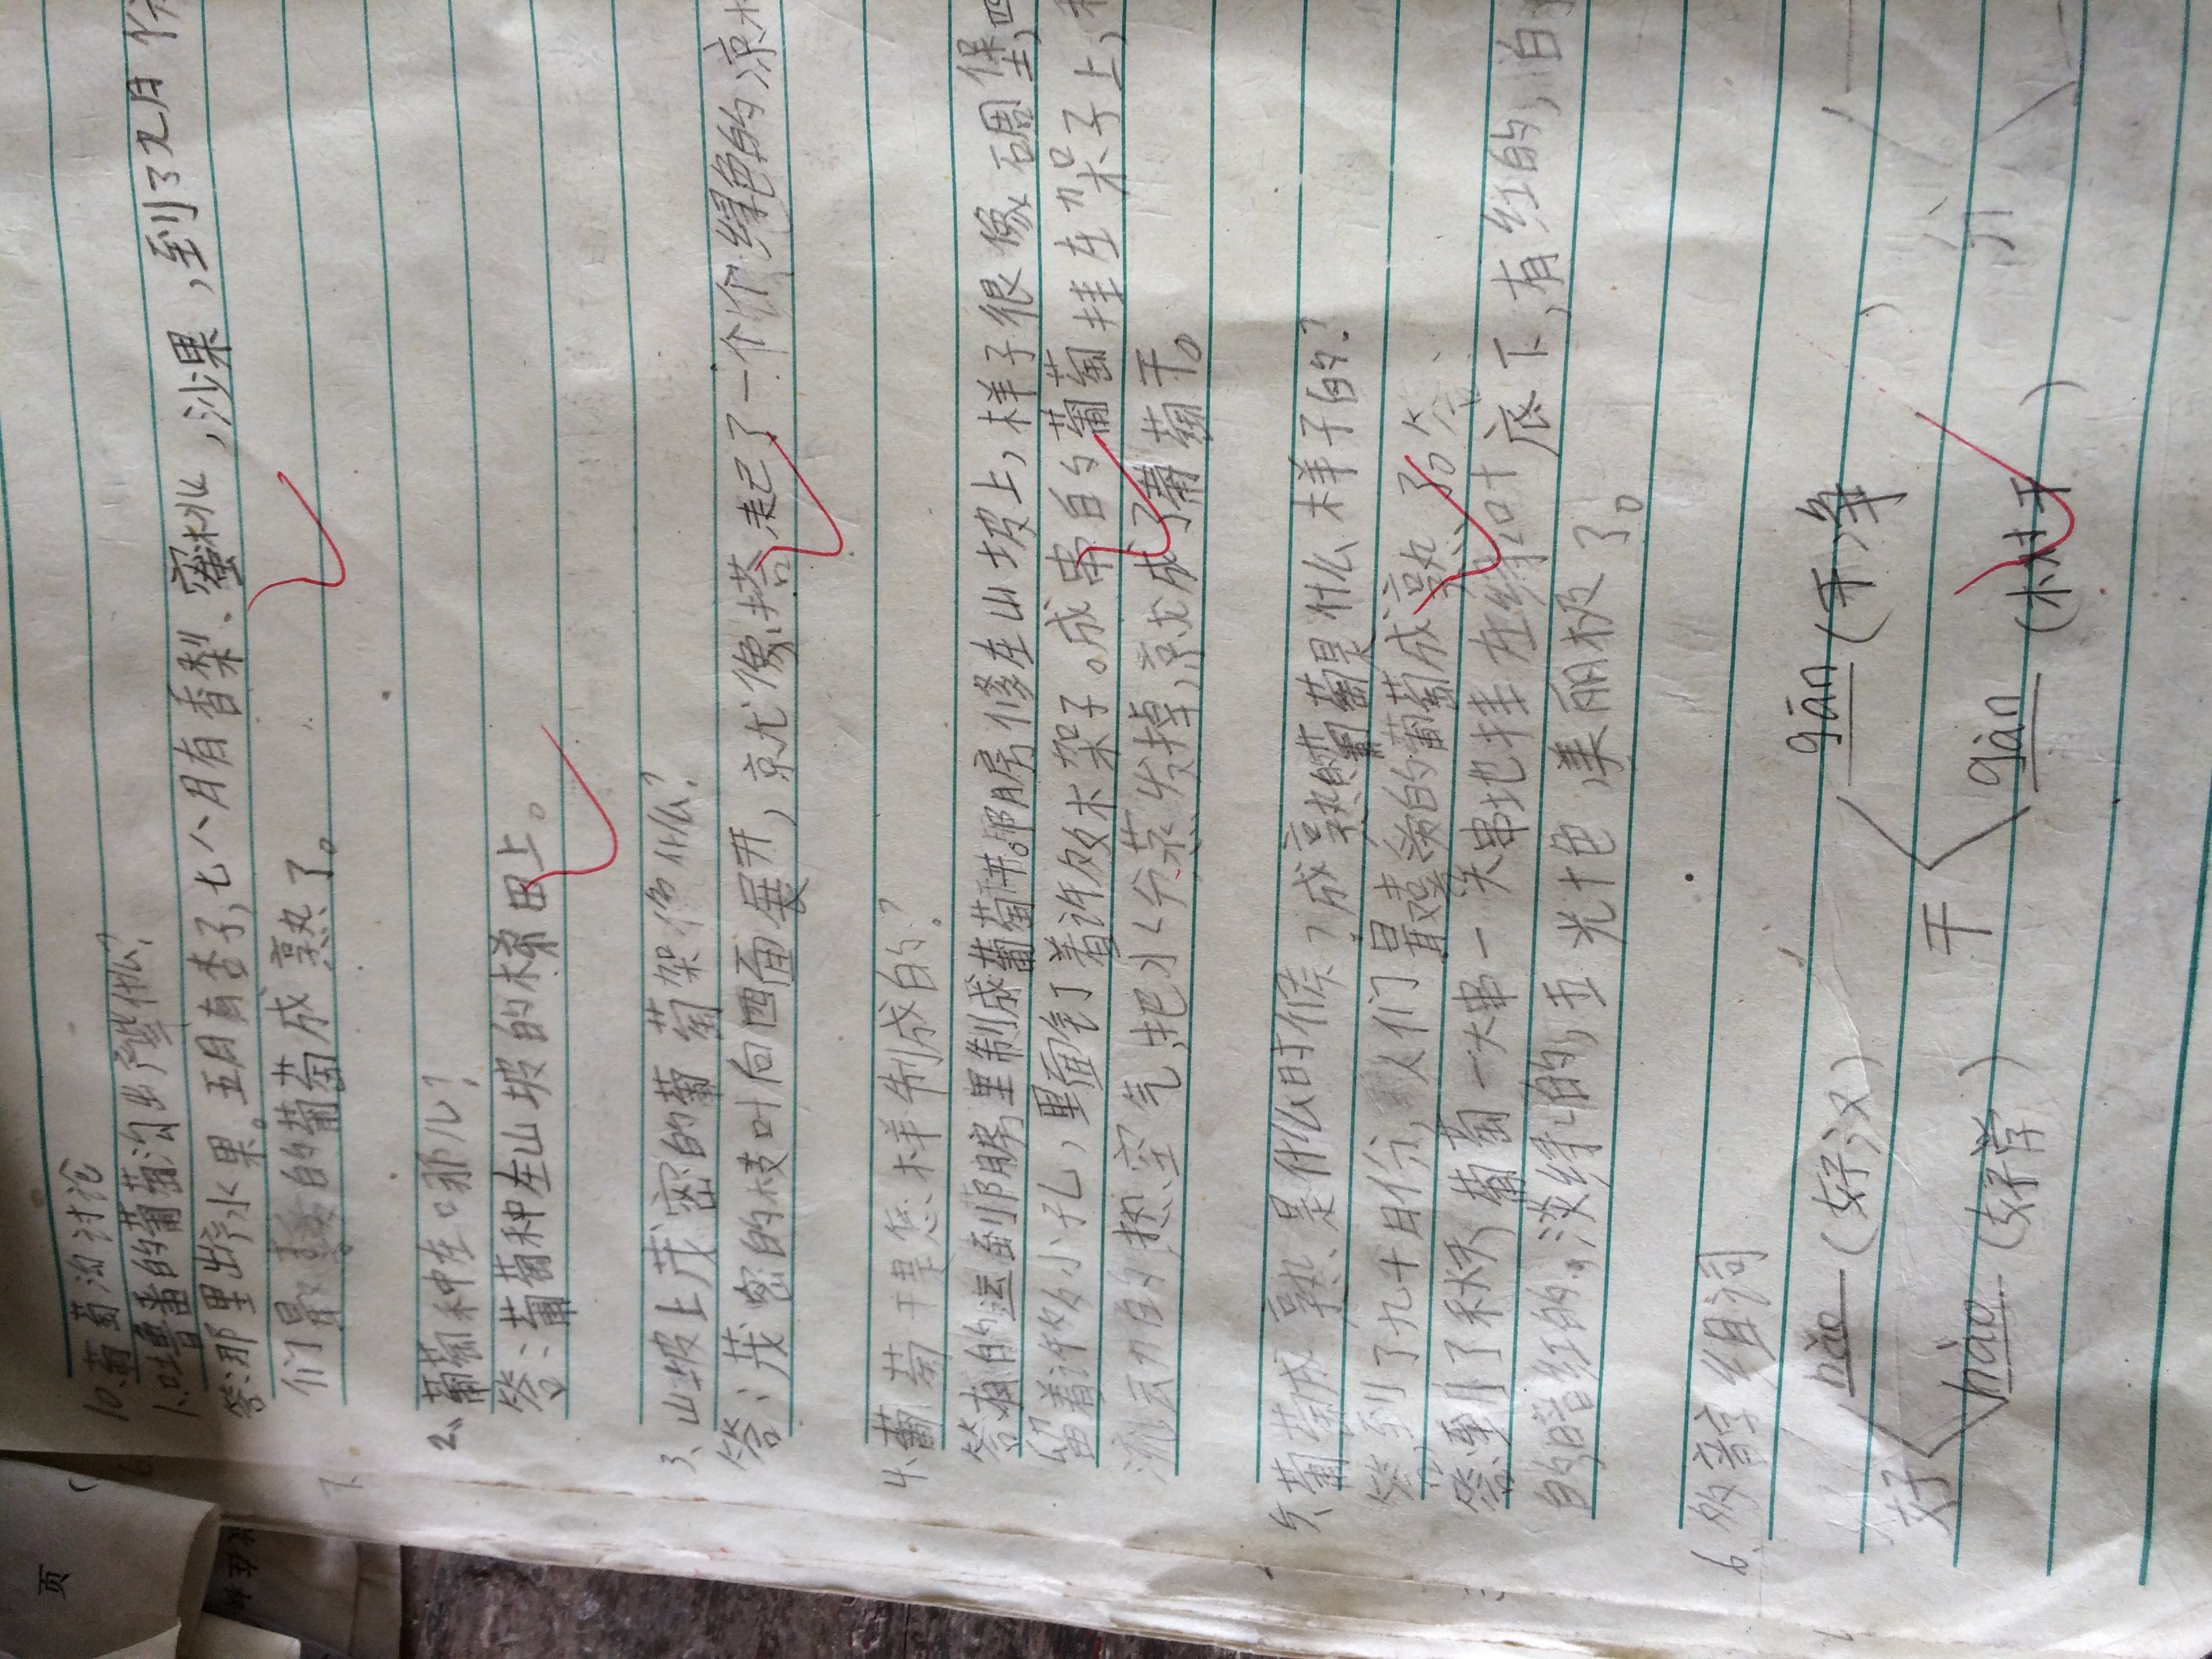 10、葡萄沟讨论
1、吐鲁番的葡萄沟出产些什么?
答:那里出产水果。五月有杏子,七八月有香梨、蜜桃,沙果,到了九月
们最喜的葡萄成熟了。
2、葡萄种在哪儿?
答:葡萄种在山坡的梯田上。
3、山坡上茂密的葡萄架像什么?
答:茂密的枝叶向四面展开,就像搭起了一个个绿色的凉
4、葡萄干是怎样制成的?
答:有的运到阴房里制成葡萄干。阴房修在山坡上,样子很像碉堡,四
留着许多小孔,里面钉着许多木架子。成串的葡萄挂在架子上,
流动的热空气把水分蒸发掉,就成了葡萄干。
5、葡萄成熟是什么时候?成熟的葡萄是什么样子的?
答:到了九十月份,人们最喜的葡萄成熟了。
答:到了秋天,葡萄一大串一大串地挂在绿叶底下,有红的,白
的,暗红的,淡绿的,五光十色,美丽极了。
6、多音字组词
好 hǎo(好汉) 干 gān(干净)
hào(好学) gàn(树干)
页